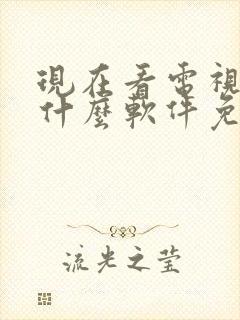 現在看電視
什麼軟件免
流光之莹